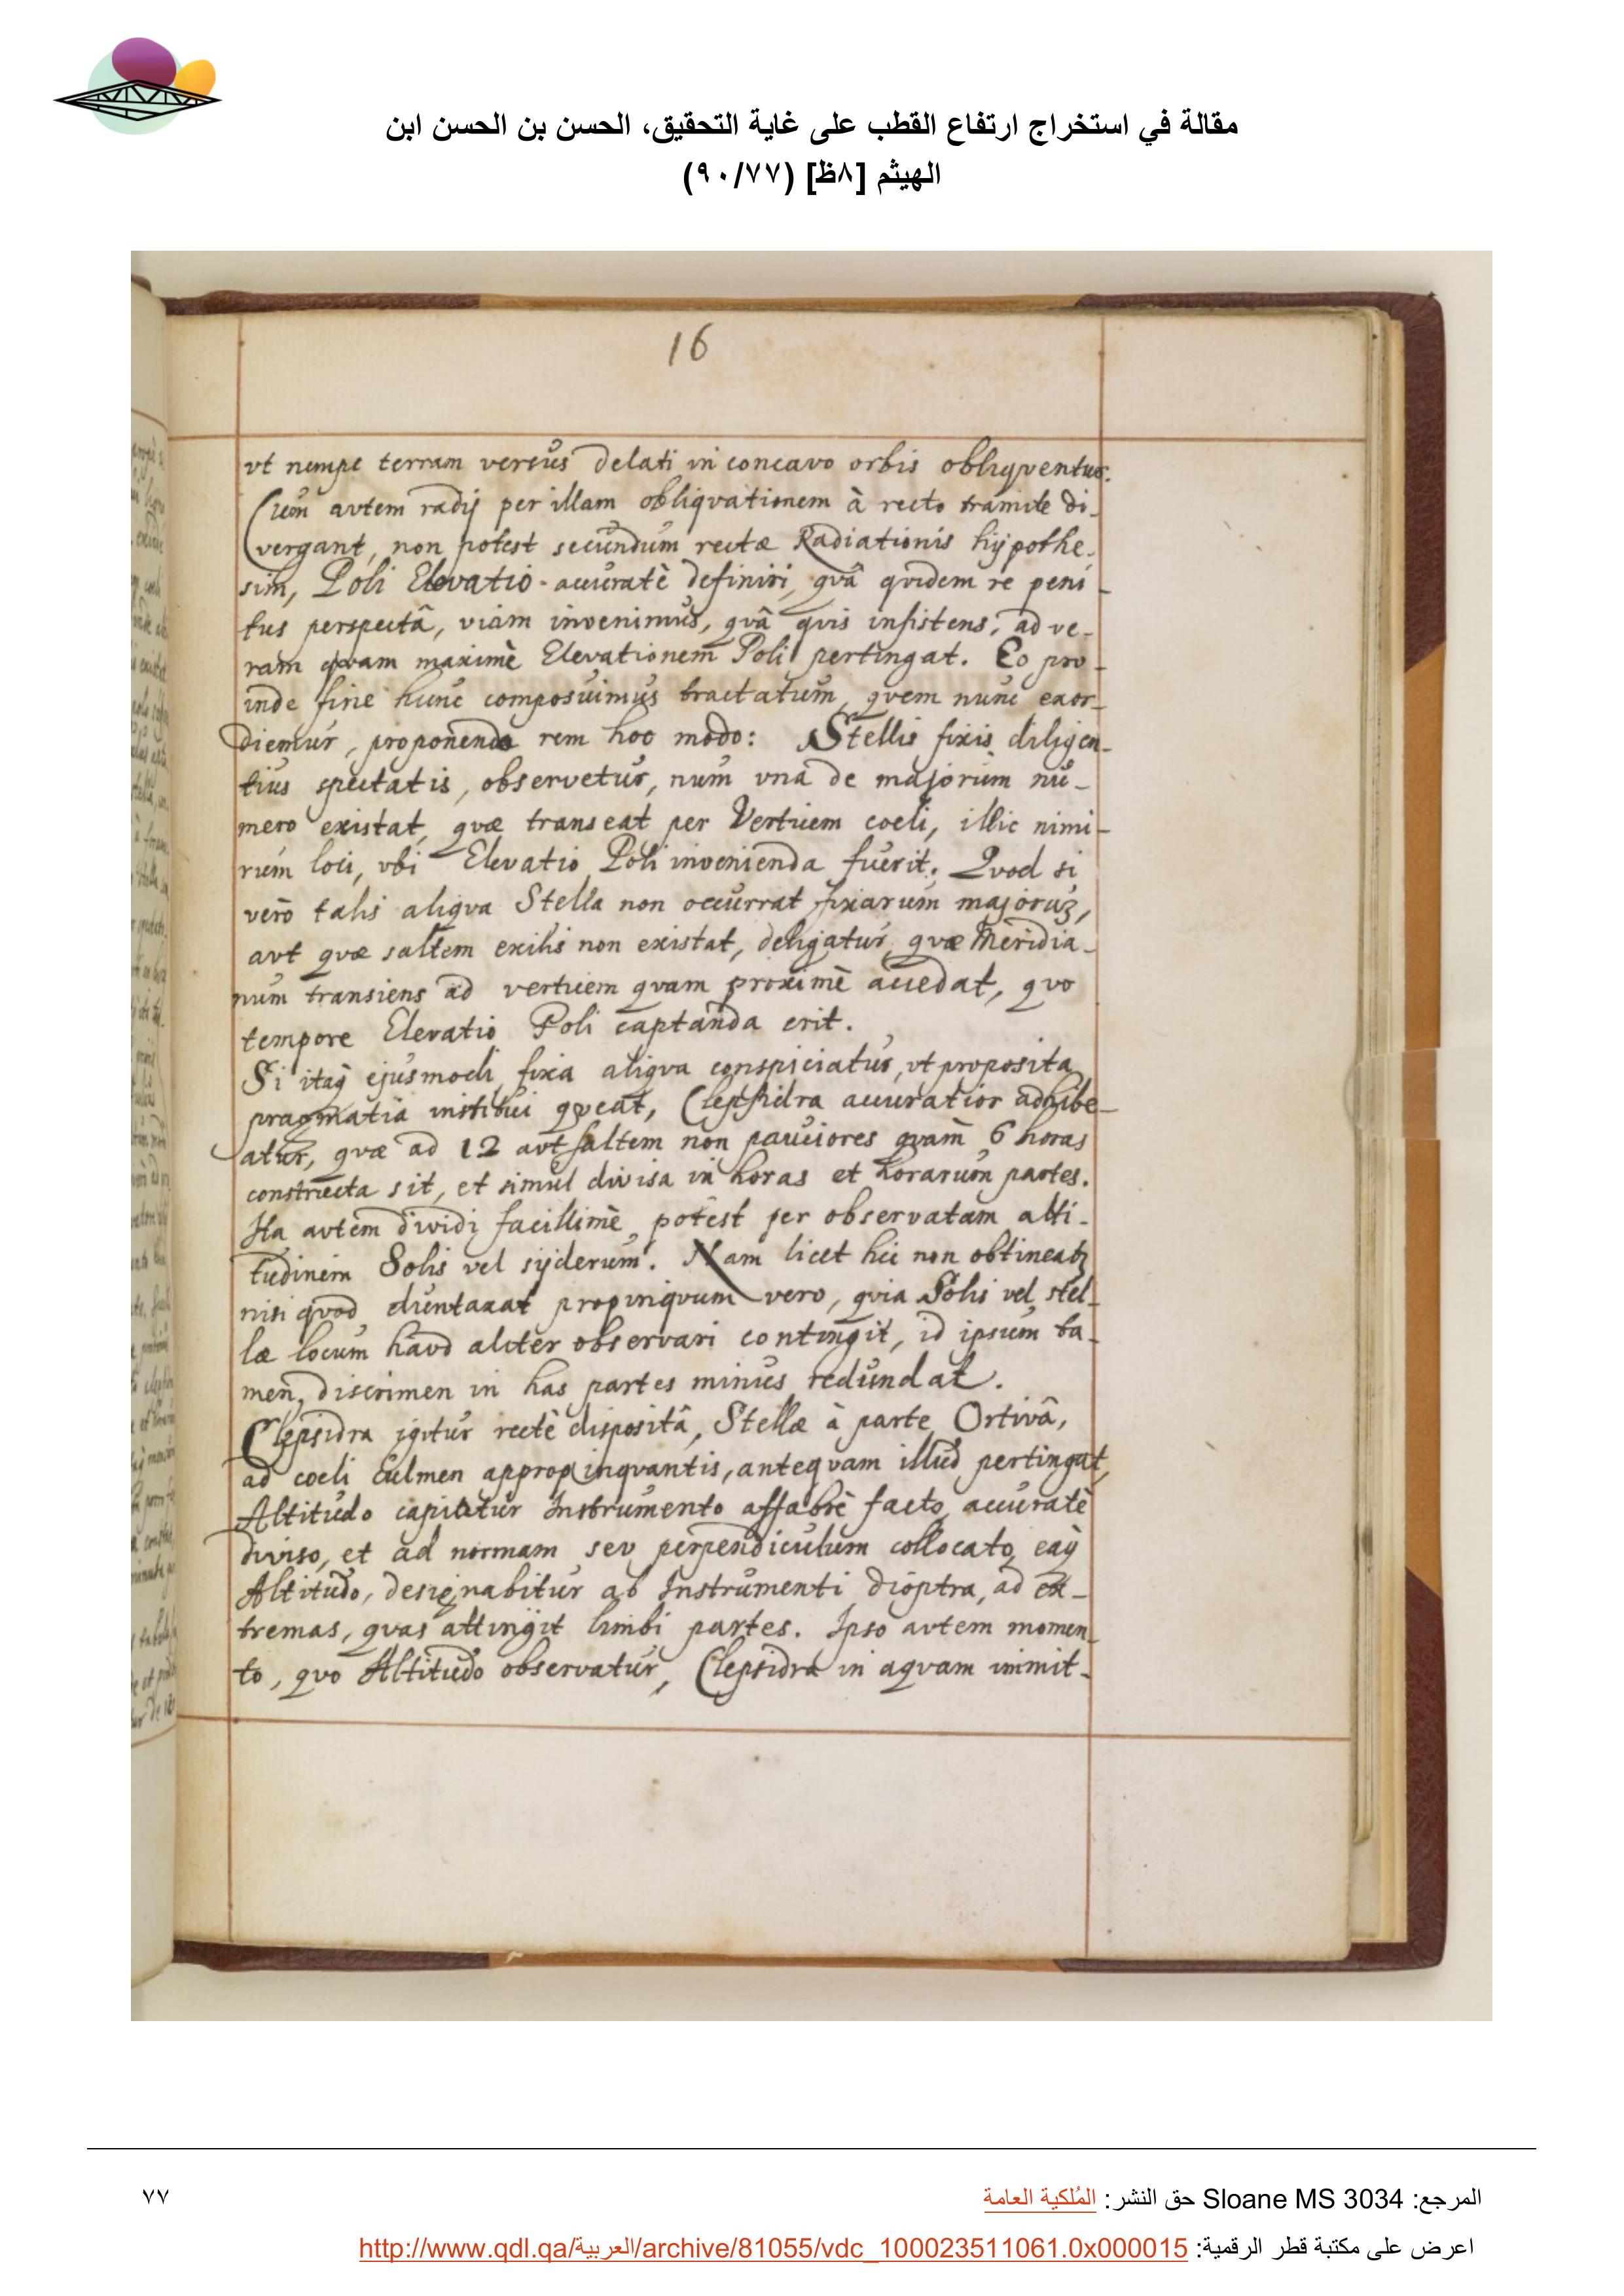 مقالة في استخراج ارتفاع القطب على غاية التحقيق، الحسن بن الحسن ابن
الهيثم [٨ظ] (٩٠/٧٧)
16
vt nempe terram versus delati in concavo orbis obliqventur.
Cum avtem radij per illam obliqvationem à recto tramite di-
vergant, non potest secundum rectæ Radiationis hijpothe-
sim, Poli Elevatio accuratè definiri, qvâ qvidem re peni-
tus perspectâ, viam invenimus, qvâ qvis insistens, ad ve-
ram qvam maximè Elevationem Poli pertingat. Eo pro-
inde fine hunc composuimus tractatum, qvem nunc exor-
diemur, proponendo rem hoc modo: Stellis fixis diligen-
tius spectatis, observetur, num vna de majorum nu-
mero existat, qvæ transeat per Verticem coeli, illic nimi-
rum loci, vbi Elevatio Poli invenienda fuerit. Qvod si
vero talis aliqva Stella non occurrat fixarum majoruȝ,
avt qvæ saltem exilis non existat, deligatur, qvæ Meridia-
num transiens ad verticem qvam proximè accedat, qvo
tempore Elevatio Poli captanda erit.
Si itaq̀ ejusmodi fixa aliqva conspiciatur, vt proposita
pragmatia institui qveat, Clepsidra accuratior adhibe-
atur, qvæ ad 12 avt saltem non pauciores qvam 6 horas
constructa sit, et simul divisa in horas et horarum partes.
Ita avtem dividi facillimè potest per observatam alti-
tudinem Solis vel sijderum. Nam licet hic non obtineatȝ
nisi qvod duntaxat propinqvum vero, qvia Solis vel stel-
læ locum havd aliter observari contingit, id ipsum ta-
men, discrimen in has partes minus redundat.
Clepsidra igitur rectè dispositâ, Stellæ à parte Ortivâ,
ad coeli Culmen appropinqvantis, anteqvam illud pertingat,
Altitudo capiatur Instrumento affabrè facto, accuratè
diviso, et ad normam sev perpendiculum collocato, eaq̀
Altitudo, designabitur ab Instrumenti dioptra, ad ex-
tremas, qvas attingit limbi partes. Ipso avtem momen-
to, qvo Altitudo observatur, Clepsidra in aqvam immit-
المرجع: Sloane MS 3034 حق النشر: المُلكية العامة
٧٧
اعرض على مكتبة قطر الرقمية: http://www.qdl.qa/العربية/archive/81055/vdc_100023511061.0x000015